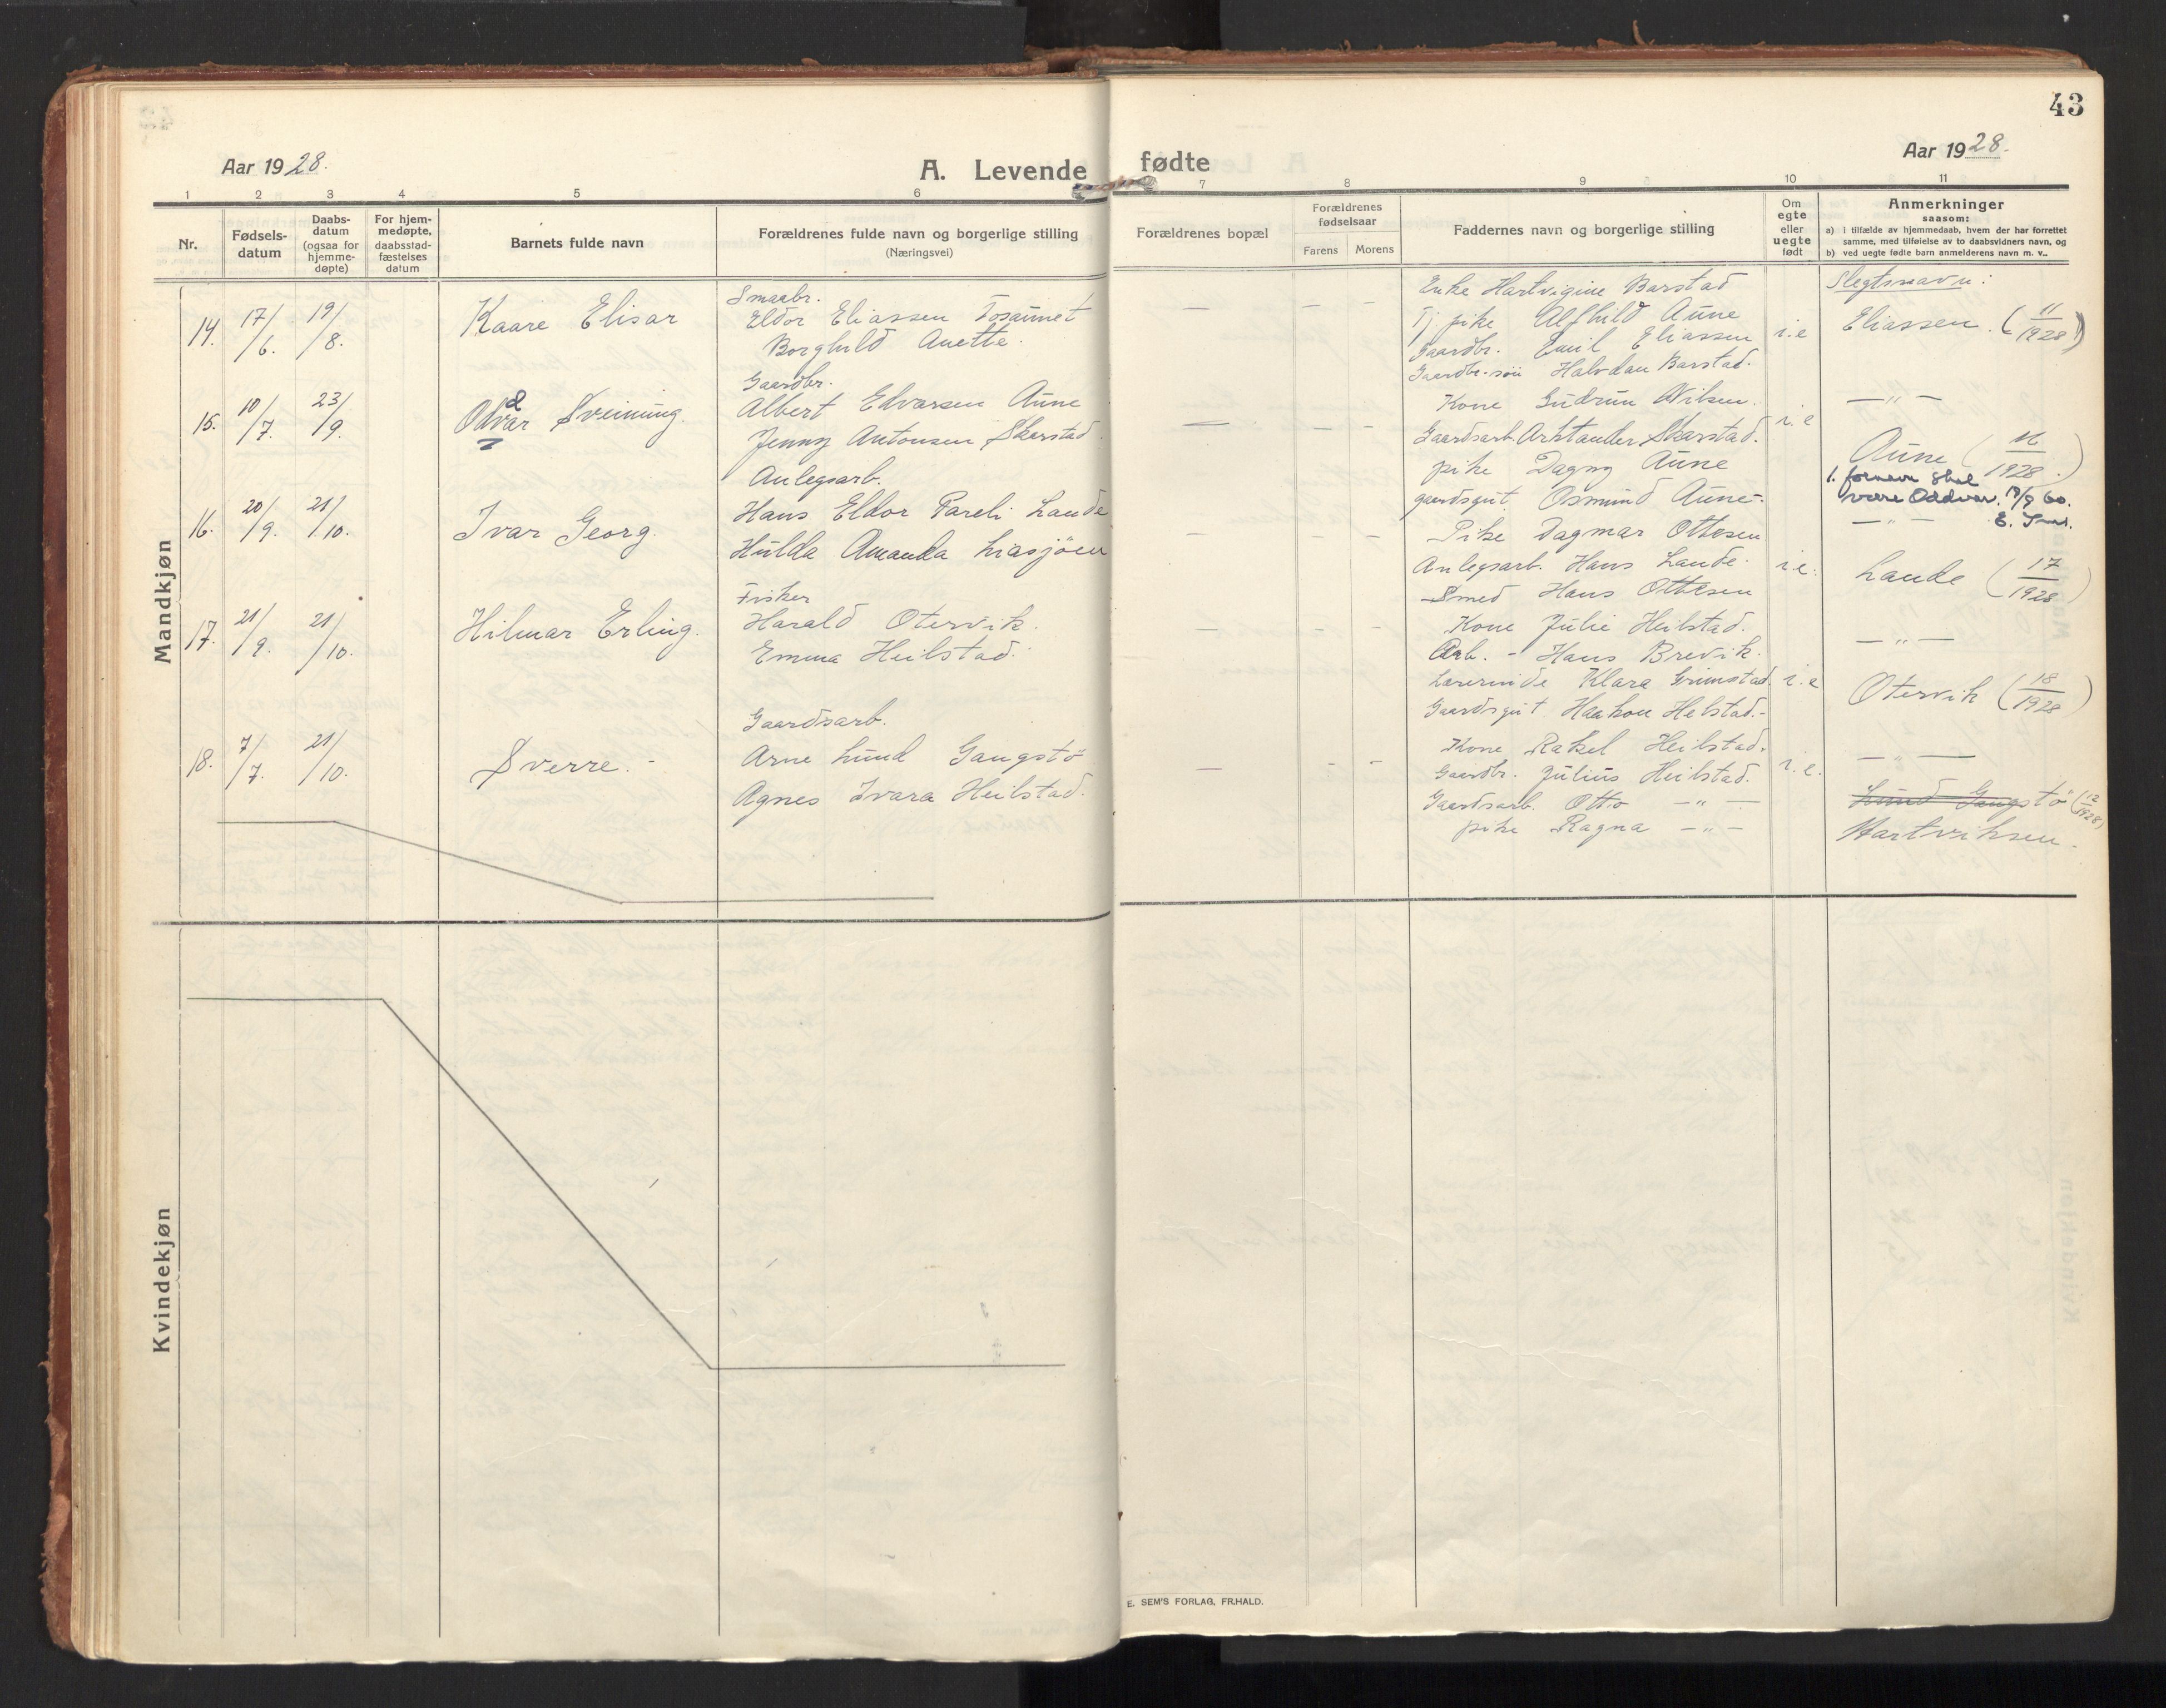 43
Aar 1928.
A. Levende fødte
Aar 1928.
1 2 3 4 5 6 7 8 9 10 11
Nr.
Fødsels-
datum
Daabs-
datum
(ogsaa for
hjemme-
døpte)
For hjem-
medøpte,
daabsstad-
fæstelses
datum
Barnets fulde navn
Forældrenes fulde navn og borgerlige stilling
(Næringsvei)
Forældrenes bopæl
Forældrenes
fødselsaar
Farens Morens
Faddernes navn og borgerlige stilling
Om
egte
eller
uegte
født
Anmerkninger
saasom:
a) i tilfælde av hjemmedaab, hvem der har forrettet
samme, med tilføielse av to daabsvidners navn, og
b) ved uegte fødte barn anmelderens navn m. v..
Mandkjøn
14. 17/6. 19/8.
Kaare Elisar
Smaabr.
Eldor Eliassen Tosaunet
Borghild Anette.
— – –
Enke Hartvigine Barstad
Tj pike Alfhild Aune
Gaardbr. Emil Eliassen
Gaardbr.-søn Halvdan Barstad.
i.e
Slegtsnavn:
Eliassen. (11/1928)
15. 10/7. 23/9.
Odvar Sveinung.
d
Gaardbr.
Albert Edvarsen Aune
Jenny Antonsen Skarstad.
— – –
Kone Gudrun Nilsen.
Gaardsarb. Arhtander Skarstad.
pike Dagny Aune
gaardsgut. Osmund Aune.
i.e
— " —
Aune (16/1928.)
1. fornavn skal
være Oddvar. 13/9 60.
16. 20/9. 21/10.
Ivar Georg.
Anlegsarb.
Hans Eldor Pareli Lande
Hulda Amanda Liasjöen
– – –
Pike Dagmar Ottesen
Anlegsarb. Hans Lande.
Smed Hans Ottesen
i e.
— " —
Lande (17/1928)
17. 21/9. 21/10.
Hilmar Erling.
Fisker
Harald Otervik.
Emma Heilstad.
– – –
Kone Julie Heilstad.
Arb. - Hans Brevik.
Lærerinde Klara Grimstad.
Gaardsgut. Haakon Helstad.-
i.e
— " —
Otervik (18/1928)
18. 7/7. 21/10.
Sverre. -
Gaardsarb.
Arne Lund Gangstö
Agnes Ivara Heilstad.
– – –
Kone Rakel Heilstad.
Gaardbr. Julius Heilstad.
Gaardsarb. Otto — " —
pike Ragna — " —
i.e.
— " —
Lund Gangstö (12/1928)
Hartviksen.
Kvindekjøn
E. SEM'S FORLAG, FR.HALD.